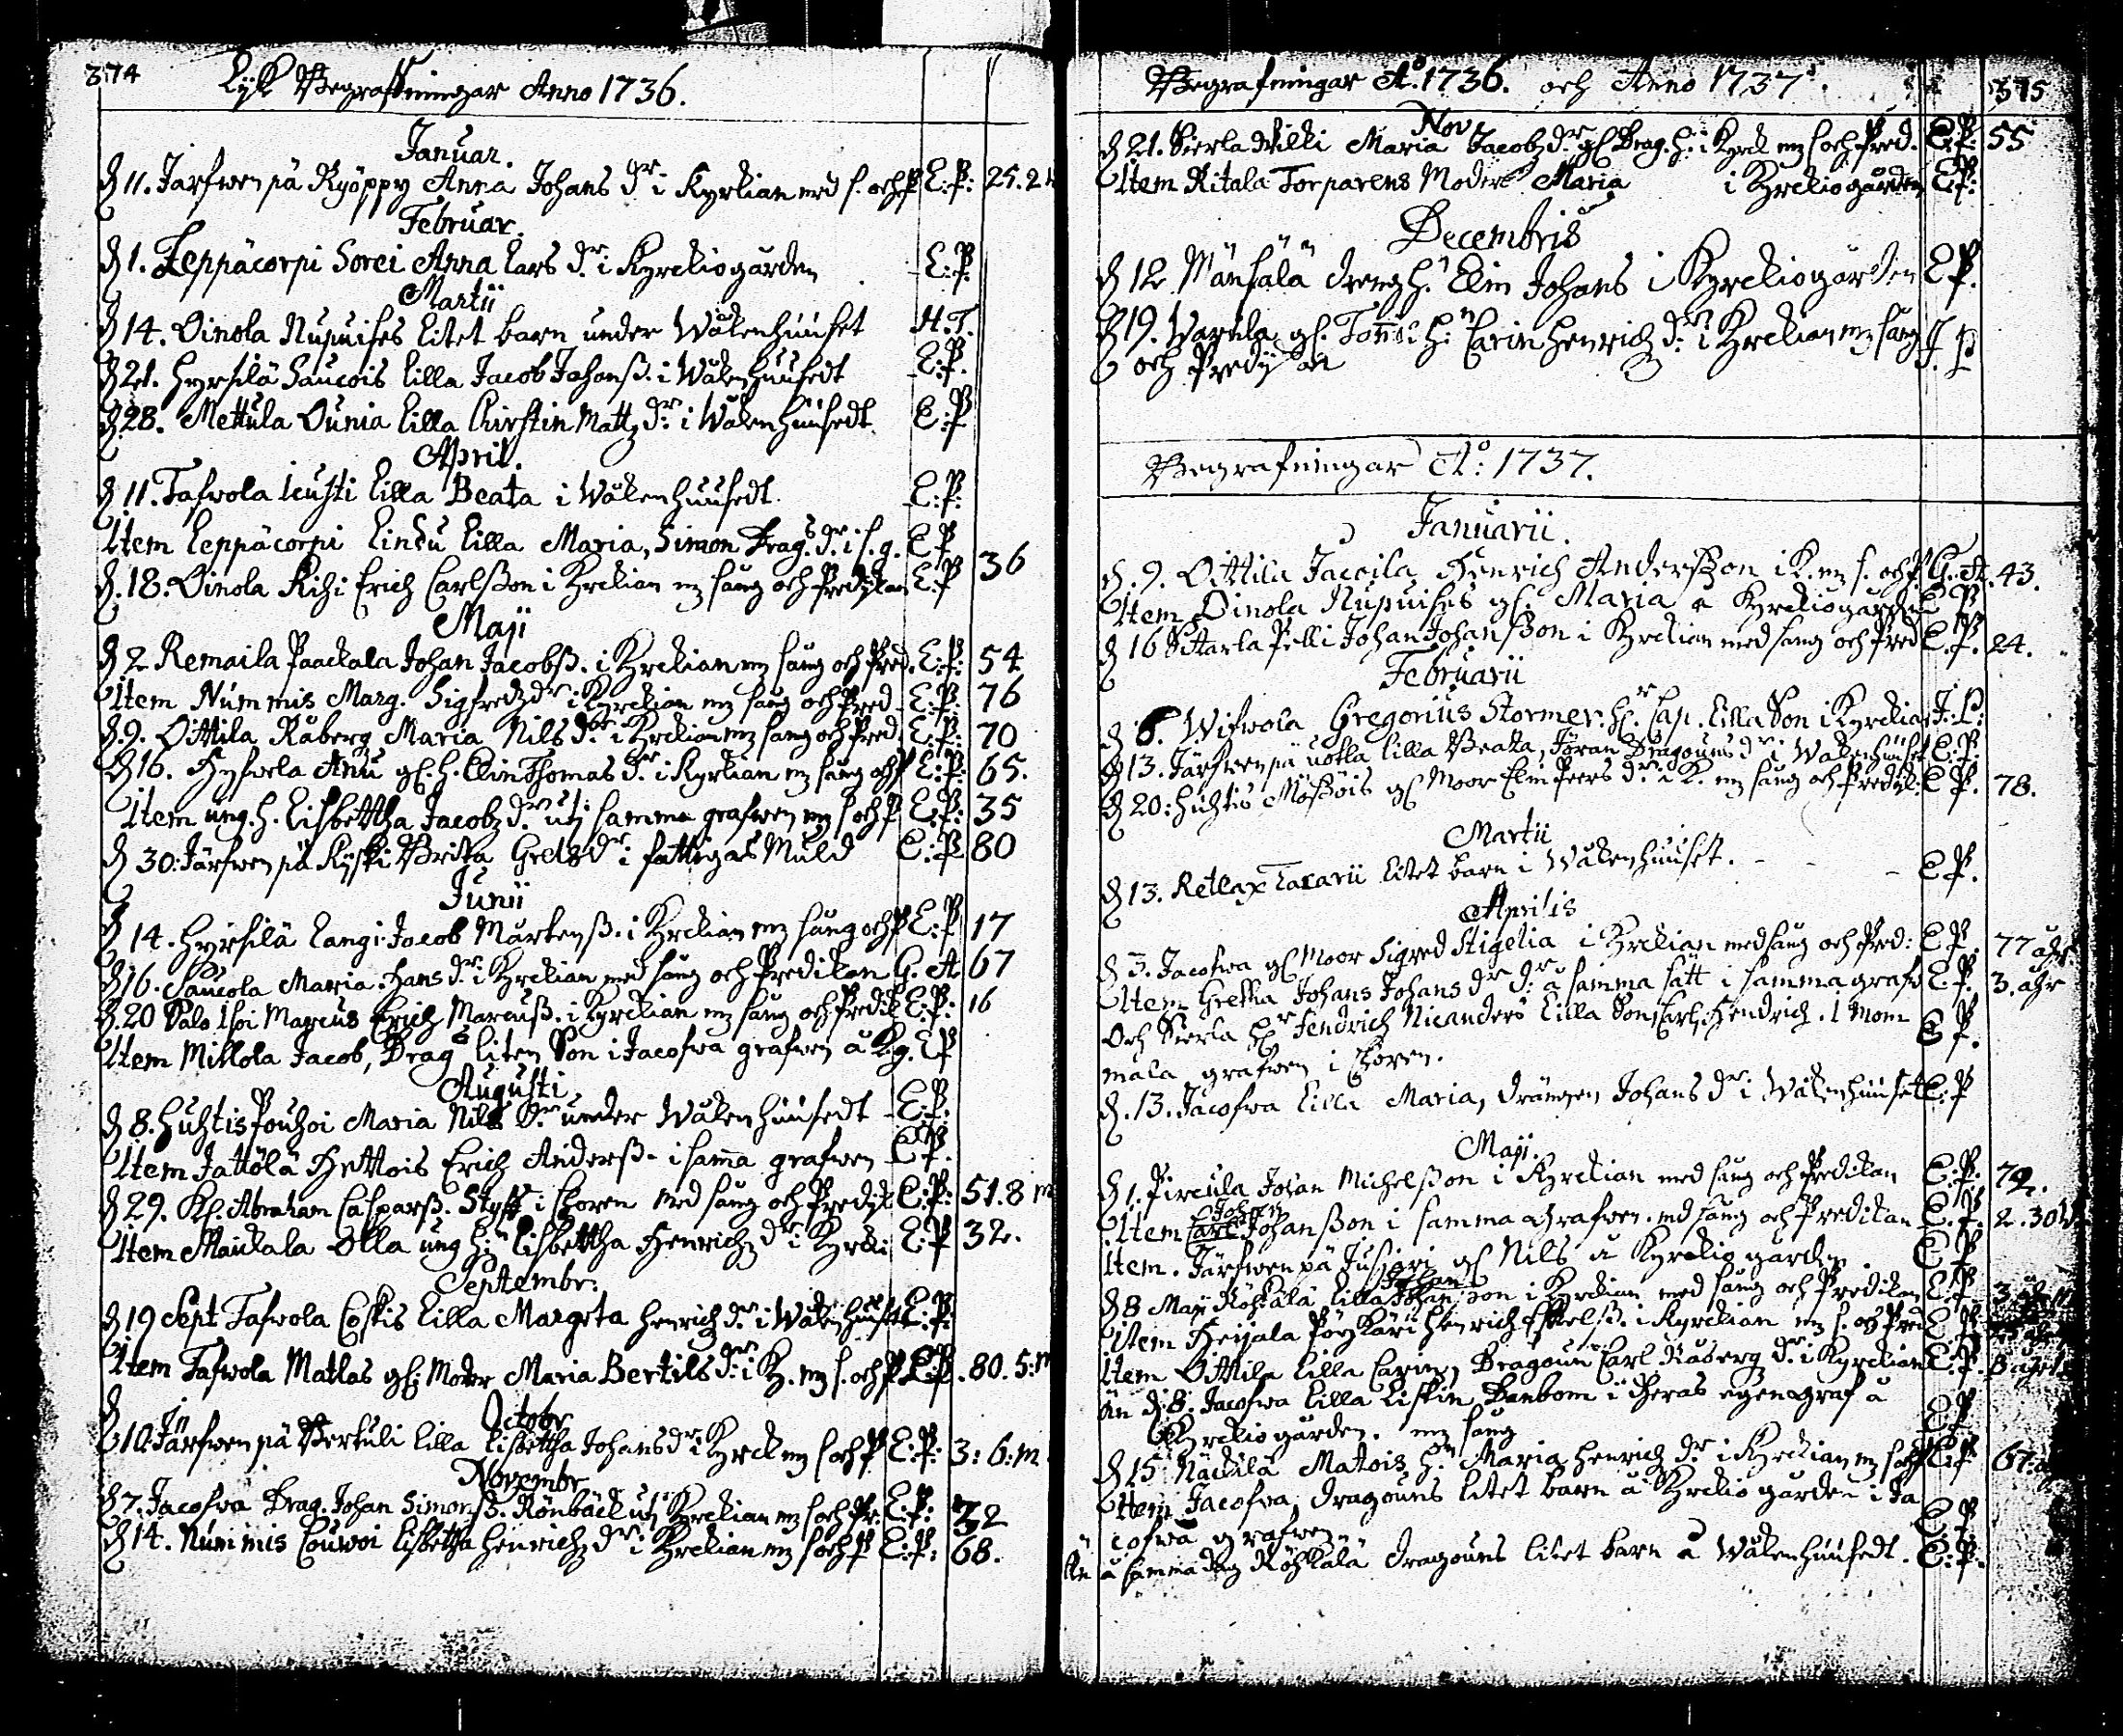 374
Lijk Begrafningar Anno 1736.
Januar.
D 11. Järfwenpä Kyöppy Anna Johans dr i Kyrkian med s. och P E: P: 25. 2
Februar.
D 1. Leppäcorpi Sorei Anna Lars dr i Kyrckiogården E: P.
Martii
D 14. Oinola Nupuises litet barn under Wåkenhuuset H. T.
D 21. Hyrsilä Saucois lilla Jacob Johanß. i Wåkenhuusedt E: P.
D 28. Mettula Ounia lilla Chirstin Mattz dr i Wåkenhuusedt E: P
April.
D 11. Tafwola Kusti lilla Beata i Wåkenhuusedt E: P:
Item Leppäcorpi Lindu lilla Maria, Simon Drag.s dr i s. g. E P
D. 18. Oinola Kihi Erich Carlßon i Kyrckian mz sång och Predikan E: P 36
Maji
D 2 Remaila Paackala Johan Jacobß. i Kyrckian mz sång och Pred. E: P: 54
Item Nummis Marg. Sigfredz dr i Kyrckian mz sång och Pred E: P: 76
D. 9. Oittila Råberg Maria Nils dr i Kyrckian mz sång och Pred. E: P: 70
D 16. Hyfwela Anu gl. h. Elin Thomas dr i Kyrkian mz sång och P E: P: 65.
Item ung. h. Lisbettha Jacobz dr utj samma grafwen mz s och P E: P: 35
D 30: Järfwenpä Kyski Brita Grels dr i fattigas Muld E: P 80
Junii
D 14. Hyrsilä Langi Jacob Mårtenß. i Kyrckian mz sång och P E: P 17
D 16. Saucola Maria Hans dr i Kyrckian med sång och Predikan G. A 67
D. 20 Salo Isoi Marcus Erich Marcuß. i Kyrckian mz sång och Predik E: P: 16
Item Millola Jacob, Drags liten Son i Jacofwa grafwen å K. g. E P
Augusti
D 8. Huhtis Pouhoi Maria Nils dr under Wåkenhuusedt E: P:
Item Jättölä Hettois Erich Anderß. i sama grafwen E P.
D 29. Kl. Abraham Casparß. Styff i Choren med sång och Predik E: P: 51. 8 m
Item Maickala Olla ung hn Lisbettha Henrichz dr i Kyrcki E: P 32.
Septembr:
D 19 Sept Tafwola Coskis lilla Margeta Henrich dr i Wåkenhuuset E: P:
Item Tafwola Matlas gl: Moder Maria Bertils dr i K. mz s. och P. E: P. 80. 5: m
Octobr
D 10 Järfwenpä Pertuli lilla Lisbettha Johans dr i Kyrck mz s och P E: P: 3: 6: m.
Novembr
D 7. Jacofwa Drag. Johan Simonß. Rönbäck utj Kyrckian mz s och Pr. E: P: 32
D 14. Nummis Couwoi Lisbetha Henrichz dr i Kyrckian mz s och P E: P: 68.
Begrafningar Ao. 1736. och Anno 1737. 375
Nov.
D 21. Sierla Wilki Maria Jacobz dr gl Drag. h. i Kyrck mz s och Pred. E: P: 55
Item Kitala Torparens Moder Maria i Kyrckiogården E: P:
Decembris
D 12 Månsalä drengh. Elin Johans i Kyrckiogården E P.
D 19. Warila gl. Tonni hn Carin Henrich dr i Kyrckian mz sång J. P
och Predikan
Begrafningar Ao: 1737.
Januarii.
D. 9. Oittila Jacoila Henrich Anderßon i K. mz s. och P. G. A. 43.
Item Oinola Nupuises gl. Maria å Kyrckiogården E P.
D 16 Sittarla Pelli Johan Johanßon i Kyrckian med sång och Pred E. P. 24.
Februarii
D 6. Wifwola Gregorius Stormer. Hr. Cap. lilla Son i Kyrckian J. P:
D 13. Järfwenpä Uotla lilla Beata, Jöran Dragouns dr i Wåkenhuuset E: P:
D 20: Huhtis Mößöis gl Moor Elin Peers dr i K. mz sång och Predik: E P. 78.
Martii
D 13. Retlax Tacarii litet barn i Wåkenhuuset. E P.
Aprilis
D 3. Jacofwa gl Moor Sigred Stigelia i Kyrckian med sång och Pred: E P. 77 åhr
Item Gretha Johans Johans dr dr å samma sätt i samma grafw E. P. 3. åhr
Och Sierla Hr Fendrich Nicanders lilla Son Carl Hendrich. i Mom
mala grafwen i Choren. E P.
D. 13. Jacofwa lilla Maria, drängen Johans dr i Wåkenhuuset E: P
Maji.
D 1. Pircula Johan Michelßon i Kyrckian med sång och Predikan E: P. 72.
Johan
Item Carl Johanßon i samma grafwen. md sång och Predikan E. P. 2. 30 W
Item. Järfwenpä Jusjari gl Nils å Kyrckiogården. E P
Johan
D 8 Maji Röhkälä lilla Johan son i Kyrckian med sång och Predikan E: P.
Item Heijala Pöykäri Henrich Eskelß. i Kyrckian mz s. och Pred E P
Item Oittila lilla Carin, Dragoun Carl Råberg dr i Kyrckian E: P.
än d. 8. Jacofwa lilla Liskin Danbom i theras egen graf å
Kyrckiogården. mz sång E P
D 15 Näckilä Matois hn Maria Henrich dr i Kyrckian mz s och P E: P 67:
Item Jacofwa, dragouns litet barn å Kyrckiogården i Ja
cofwa grafwen. E P
än å samma dag Röhkälä dragouns litet barn å Wåkenhuusedt. E: P.